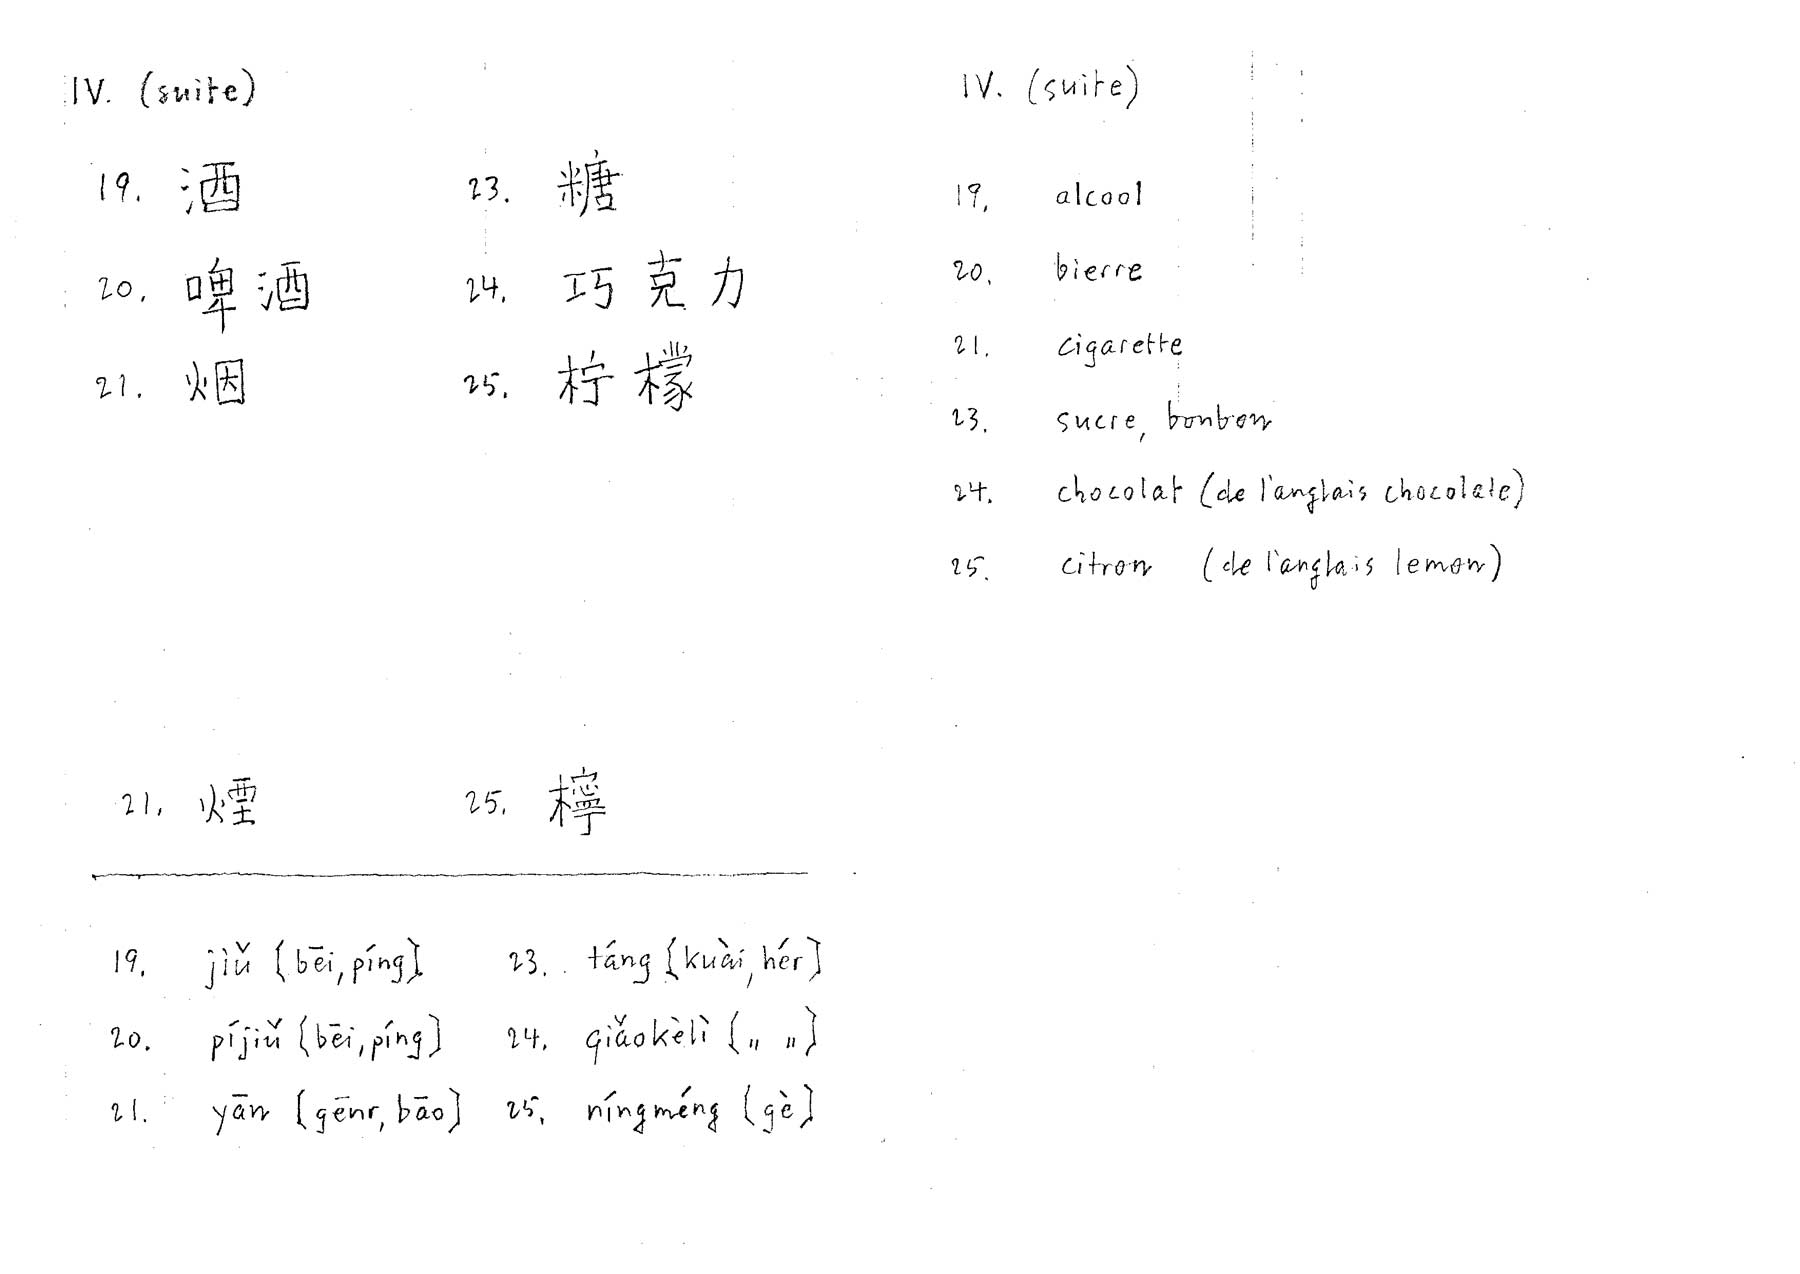 IV. (suite)
19. 酒 23. 糖
20. 啤酒 24. 巧克力
21. 烟 25. 柠檬
21. 煙 25. 檸
19. jiǔ [bēi, píng] 23. táng [kuài, hér]
20. píjiǔ [bēi, píng] 24. qiǎokèlì [" "]
21. yān [gēnr, bāo] 25. níngméng [gè]
IV. (suite)
19. alcool
20. bierre
21. cigarette
23. sucre, bonbon
24. chocolat (de l'anglais chocolate)
25. citron (de l'anglais lemon)